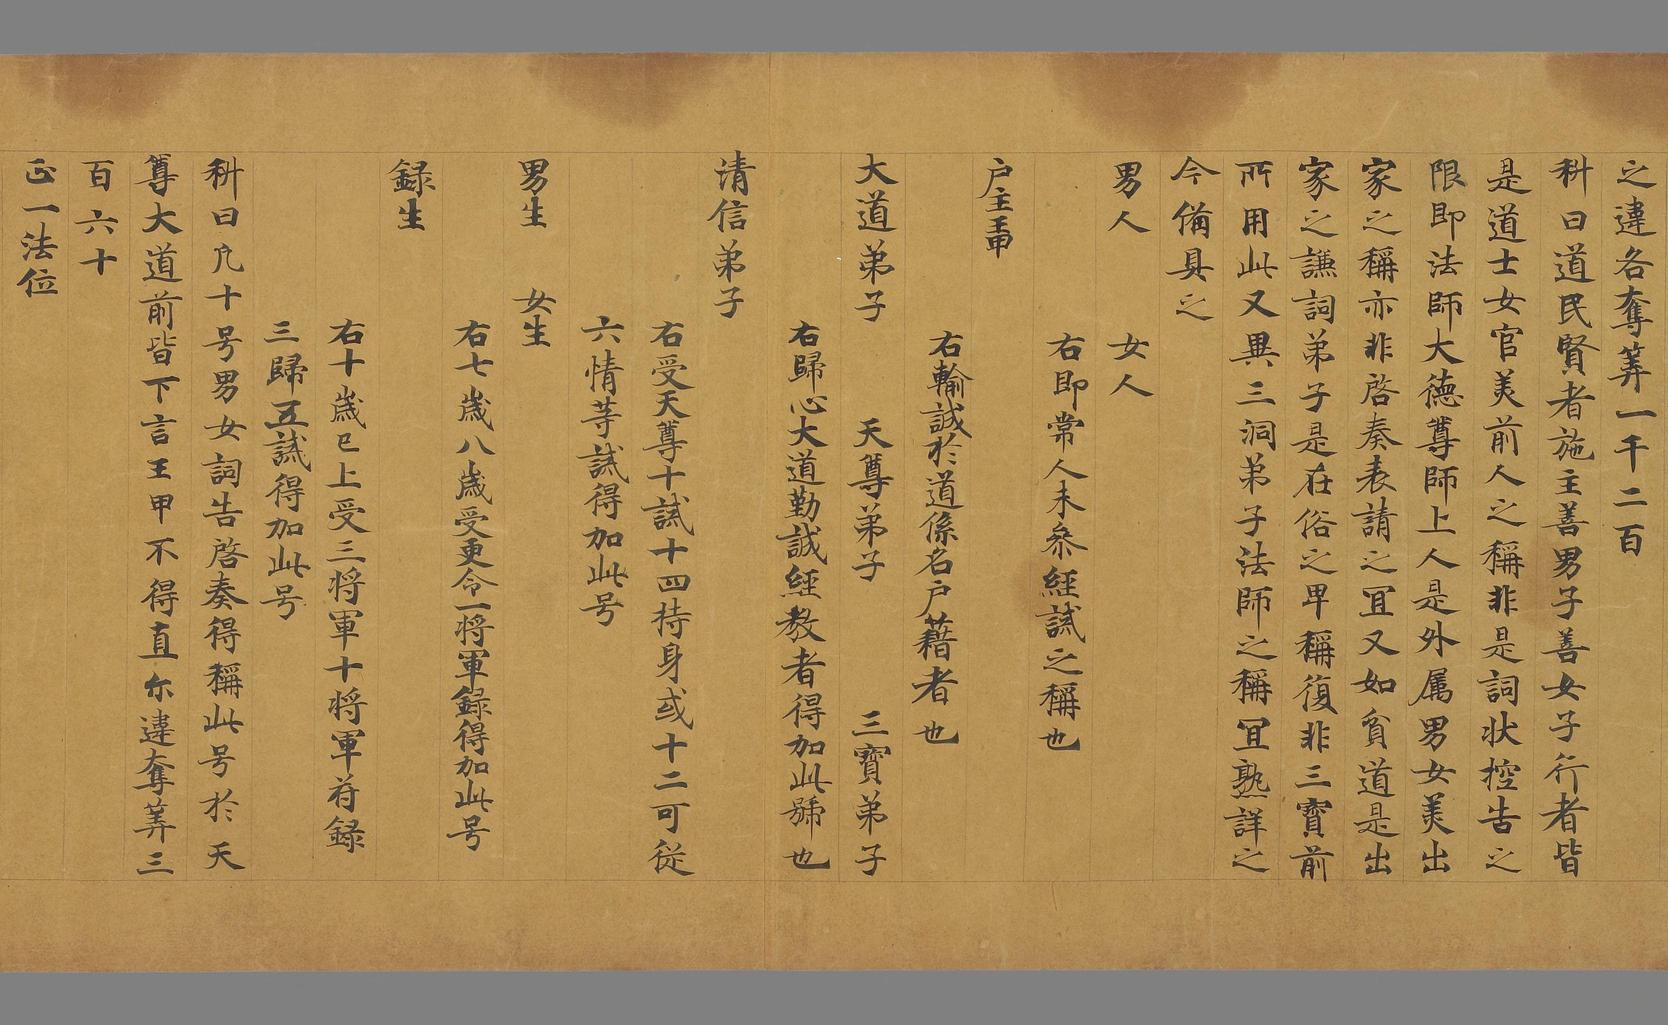 之違各奪筭一千二百
科曰道民賢者施主善男子善女子行者皆
是道士女官美前人之稱非是詞状控告之
限即法師大德尊師上人是外属男女美出
家之稱亦非啓奏表請之冝又如貧道是出
家之謙詞弟子是在俗之卑稱復非三寶前
所用此又異三洞弟子法師之稱冝熟詳之
今備具之
男人　　女人
右即常人未叅經誡之稱也
户主王甲
右輸誠於道係名户藉者也
大道弟子　　天尊弟子　　三寶弟子
右歸心大道勤誠經教者得加此號也
清信弟子
右受天尊十誡十四持身或十二可從
六情等誡得加此号
男生　女生
右七歲八歲受更令一将軍録得加此号
録生
右十歲已上受三将軍十将軍符録
三歸五誡得加此号
科曰凡十号男女詞告啓奏得稱此号於天
尊大道前皆下言王甲不得直尔違奪筭三
百六十
正一法位